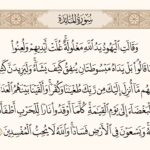 سورة المائدة
وَقَالَتِ الْيَهُودُ يَدُ اللَّهِ مَغْلُولَةٌ غُلَّتْ أَيْدِيهِمْ وَلُعِنُوا
بِمَا قَالُوا بَلْ يَدَاهُ مَبْسُوطَتَانِ يُنفِقُ كَيْفَ يَشَاءُ وَلَيَزِيدَنَّ كَثِيرًا
مِّنْهُم مَّا أُنزِلَ إِلَيْكَ مِن رَّبِّكَ طُغْيَانًا وَكُفْرًا وَأَلْقَيْنَا بَيْنَهُمُ
وَالْبَغْضَاءَ إِلَىٰ يَوْمِ الْقِيَامَةِ كُلَّمَا أَوْقَدُوا نَارًا لِّلْحَرْبِ أَطْفَأَهَا
وَيَسْعَوْنَ فِي الْأَرْضِ فَسَادًا وَاللَّهُ لَا يُحِبُّ الْمُفْسِدِينَ